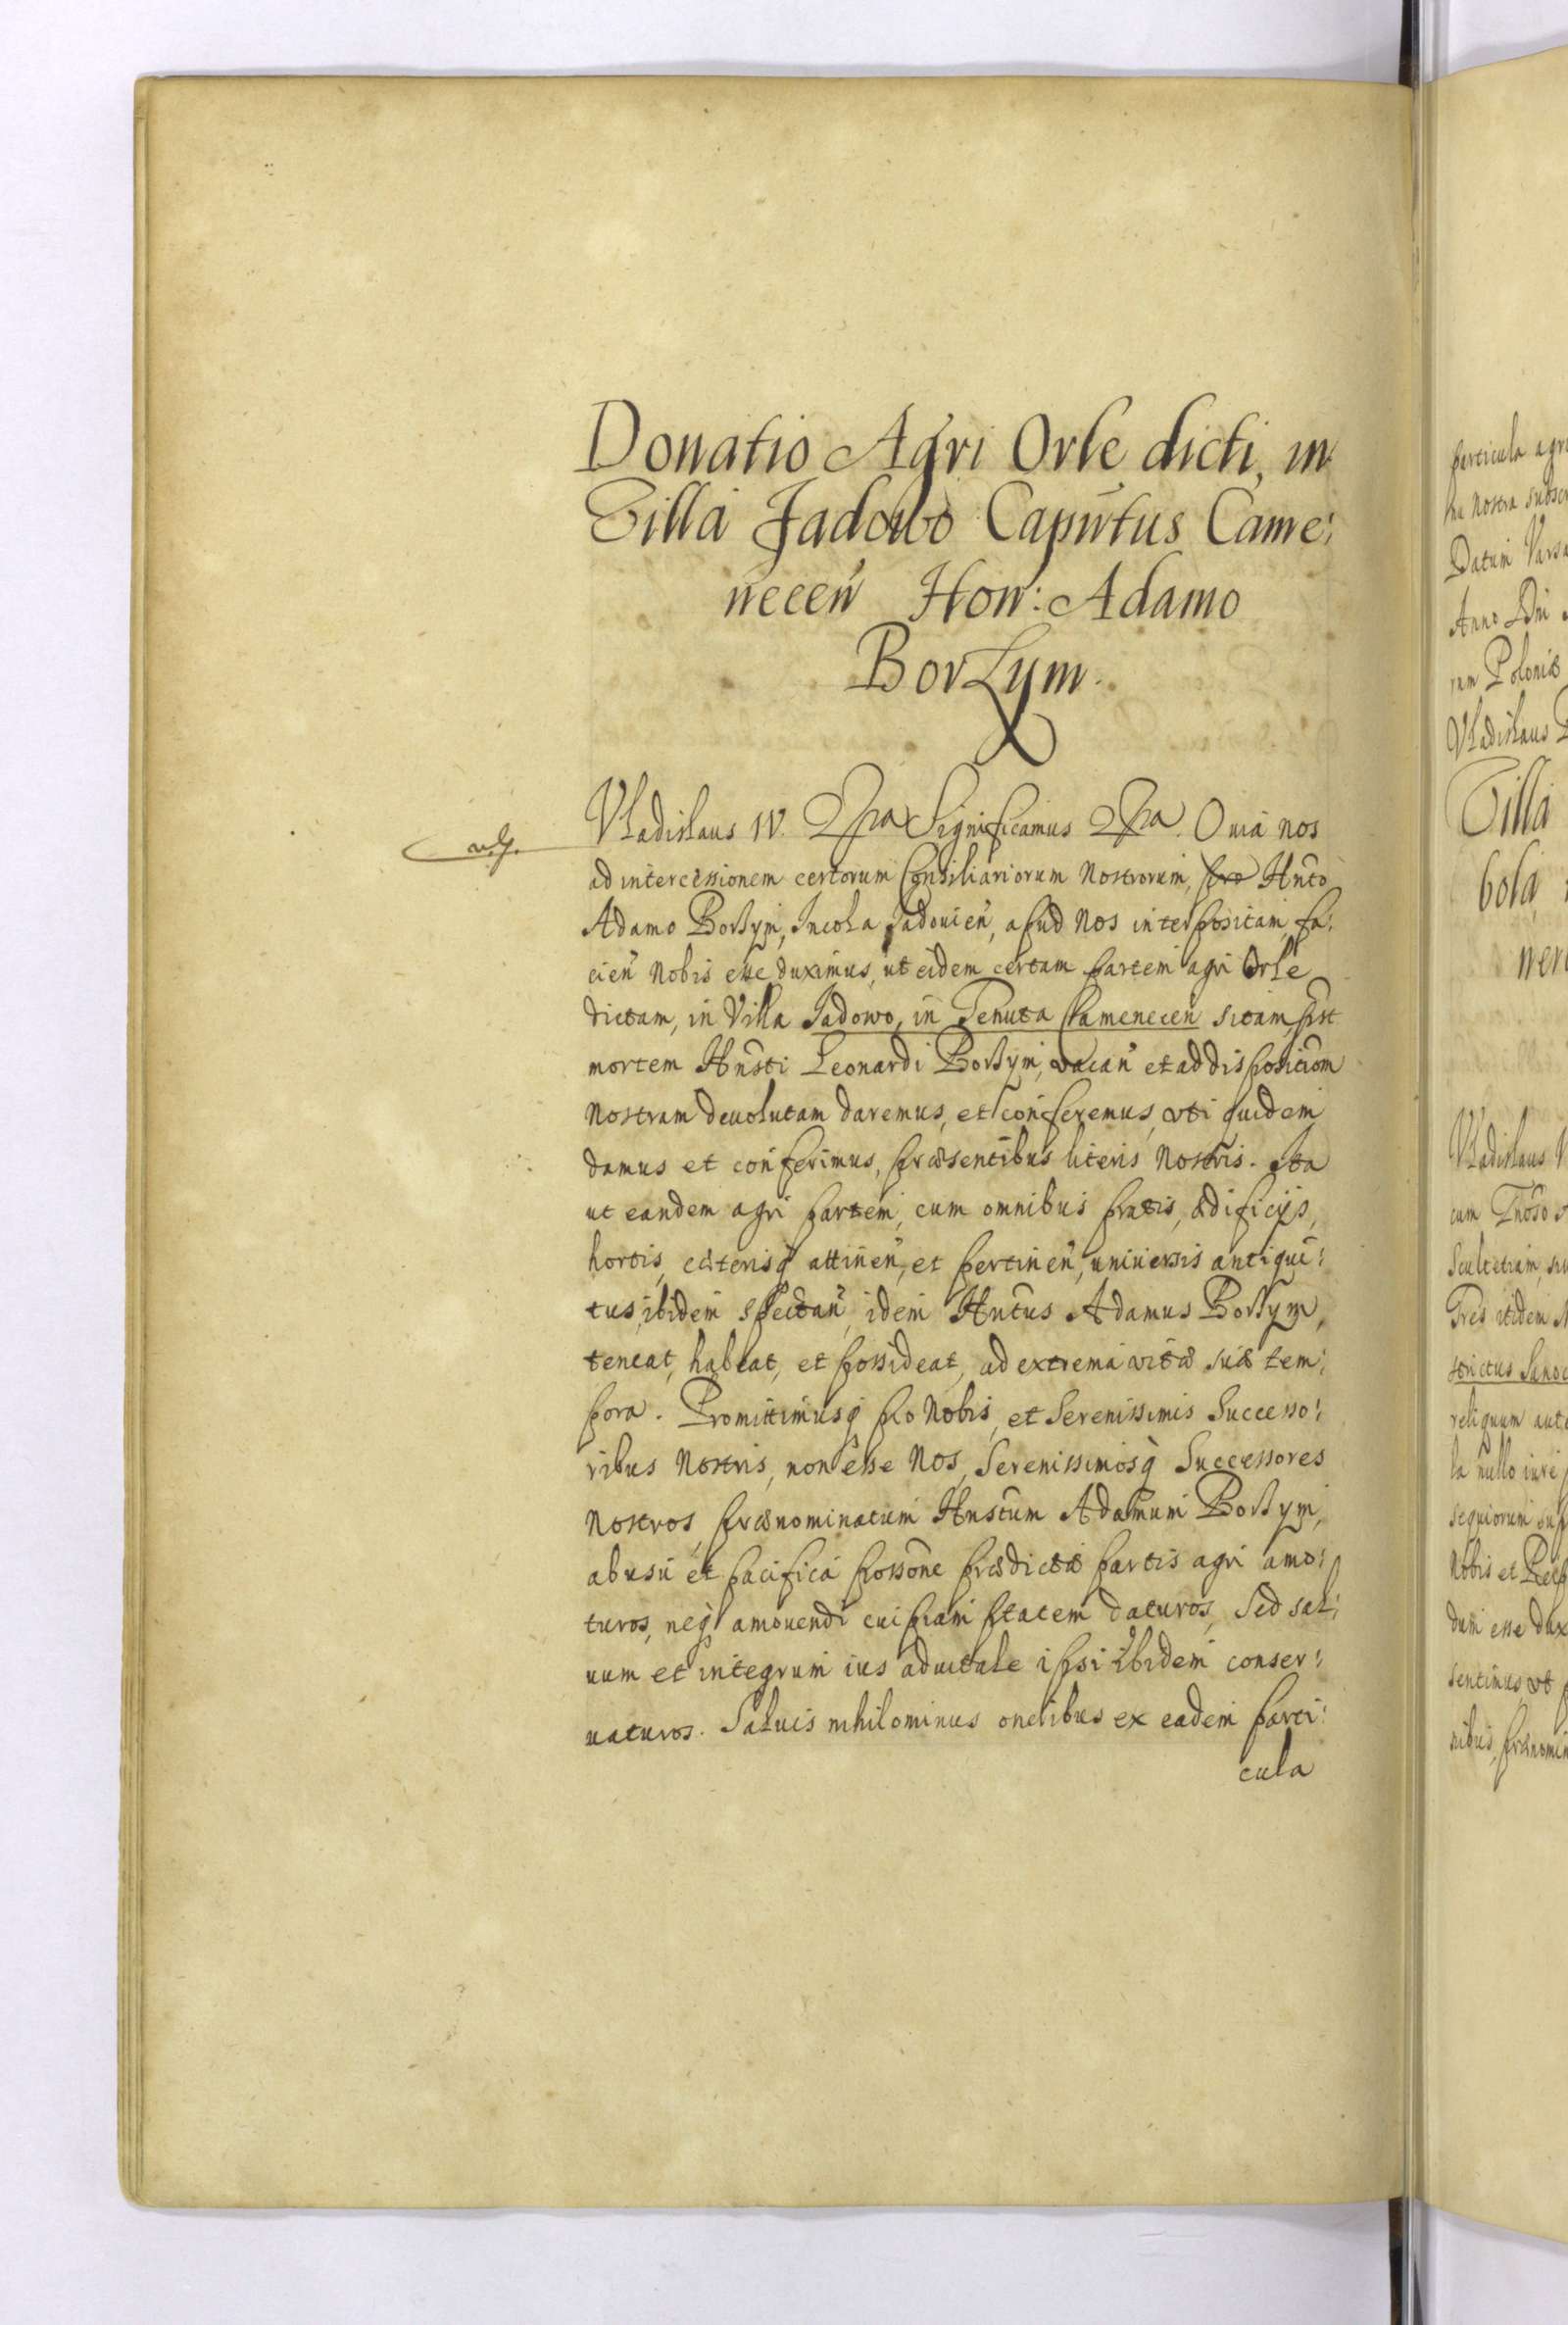 Donatio Agri Orle dicti, in
Villa Jadowo Capitus Came:
necen̄ Hon: Adamo
Borzym.
Vladislaus IV. Significamus Quia nos
ad intercessionem certorum Consiliariorum Nostrorum, pro Hn̄to
Adamo Borzym, Incola Jadouien̄, apud Nos interpositam, fa:
cien̄ Nobis esse duximus, ut eidem certam partem agri Orle
dictam, in Villa Jadowo, in Tenuta Kamenecen̄ sitam, post
mortem Hn̄sti Leonardi Borzym, vacan̄ et ad dispositiom̄
Nostram deuolutam daremus, et conferemus, vti quidem
damus et conferimus, præsentibus literis Nostris. Ita
ut eandem agri partem, cum omnibus pratis, ædificijs,
hortis, cæterisq̨ attinen̄, et pertinen̄, uniuersis antiqui:
tus, ibidem spectan̄, idem Hn̄tus Adamus Borzym,
teneat, habeat, et possideat, ad extrema vitæ suæ tem:
pora. Promittimusq̨ pro Nobis, et Serenissimis Successo:
ribus Nostris, non esse Nos, Serenissimosq̨ Successores
Nostros, prænominatum Hn̄stum Adamum Borzym,
ab usu et pacifica possōne prædictæ partis agri amo:
turos, neq̨ amouendi cuipiam ptatem daturos, Sed sal:
uum et integrum ius aduitale ipsi ibidem conser:
uaturos. Saluis nihilominus oneribus ex eadem parti:
cula
particula agri
Datum Varsa
Anno Dn̄i
rum Poloniæ
Vladislaus
Villa
Vladislaus
Scultetiam,
Tres itidem
reliquum aut
la nullo iure
sequiorum
Nobis et
dum esse dux
sentimus, vt
nibus, prænomin